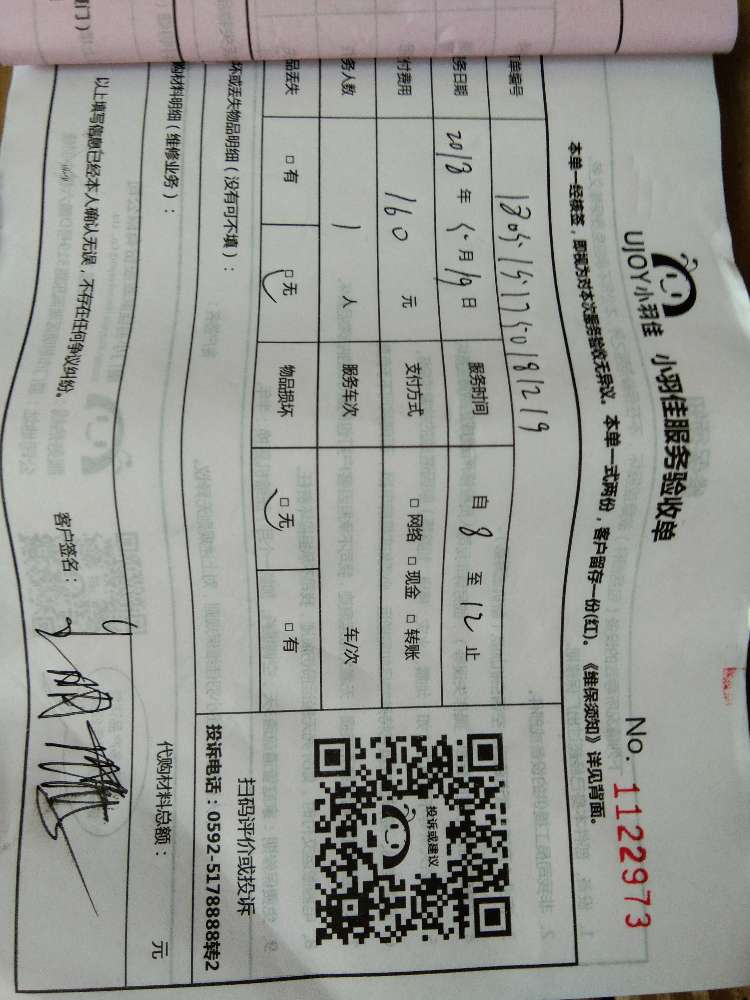 UJOY小羽佳 小羽佳服务验收单
No. 1122973
本单一经接签,即视为对本次服务验收无异议。本单一式两份,客户留存一份(红)。《维保须知》详见背面。
单编号
务日期 2018 年 5 月 19 日 服务时间 自 8 至 12 止
付费用 160 元 支付方式 □ 网络 □ 现金 □ 转账
务人数 1 人 服务车次 车/次
品丢失 □ 有 □ 无 物品损坏 □ 无 □ 有
坏或丢失物品明细(没有可不填):
投诉或建议
扫码评价或投诉
投诉电话:0592-5178888转2
购材料明细(维修业务):
代购材料总额: 元
以上填写信息已经本人确认无误,不存在任何争议纠纷。
客户签名: